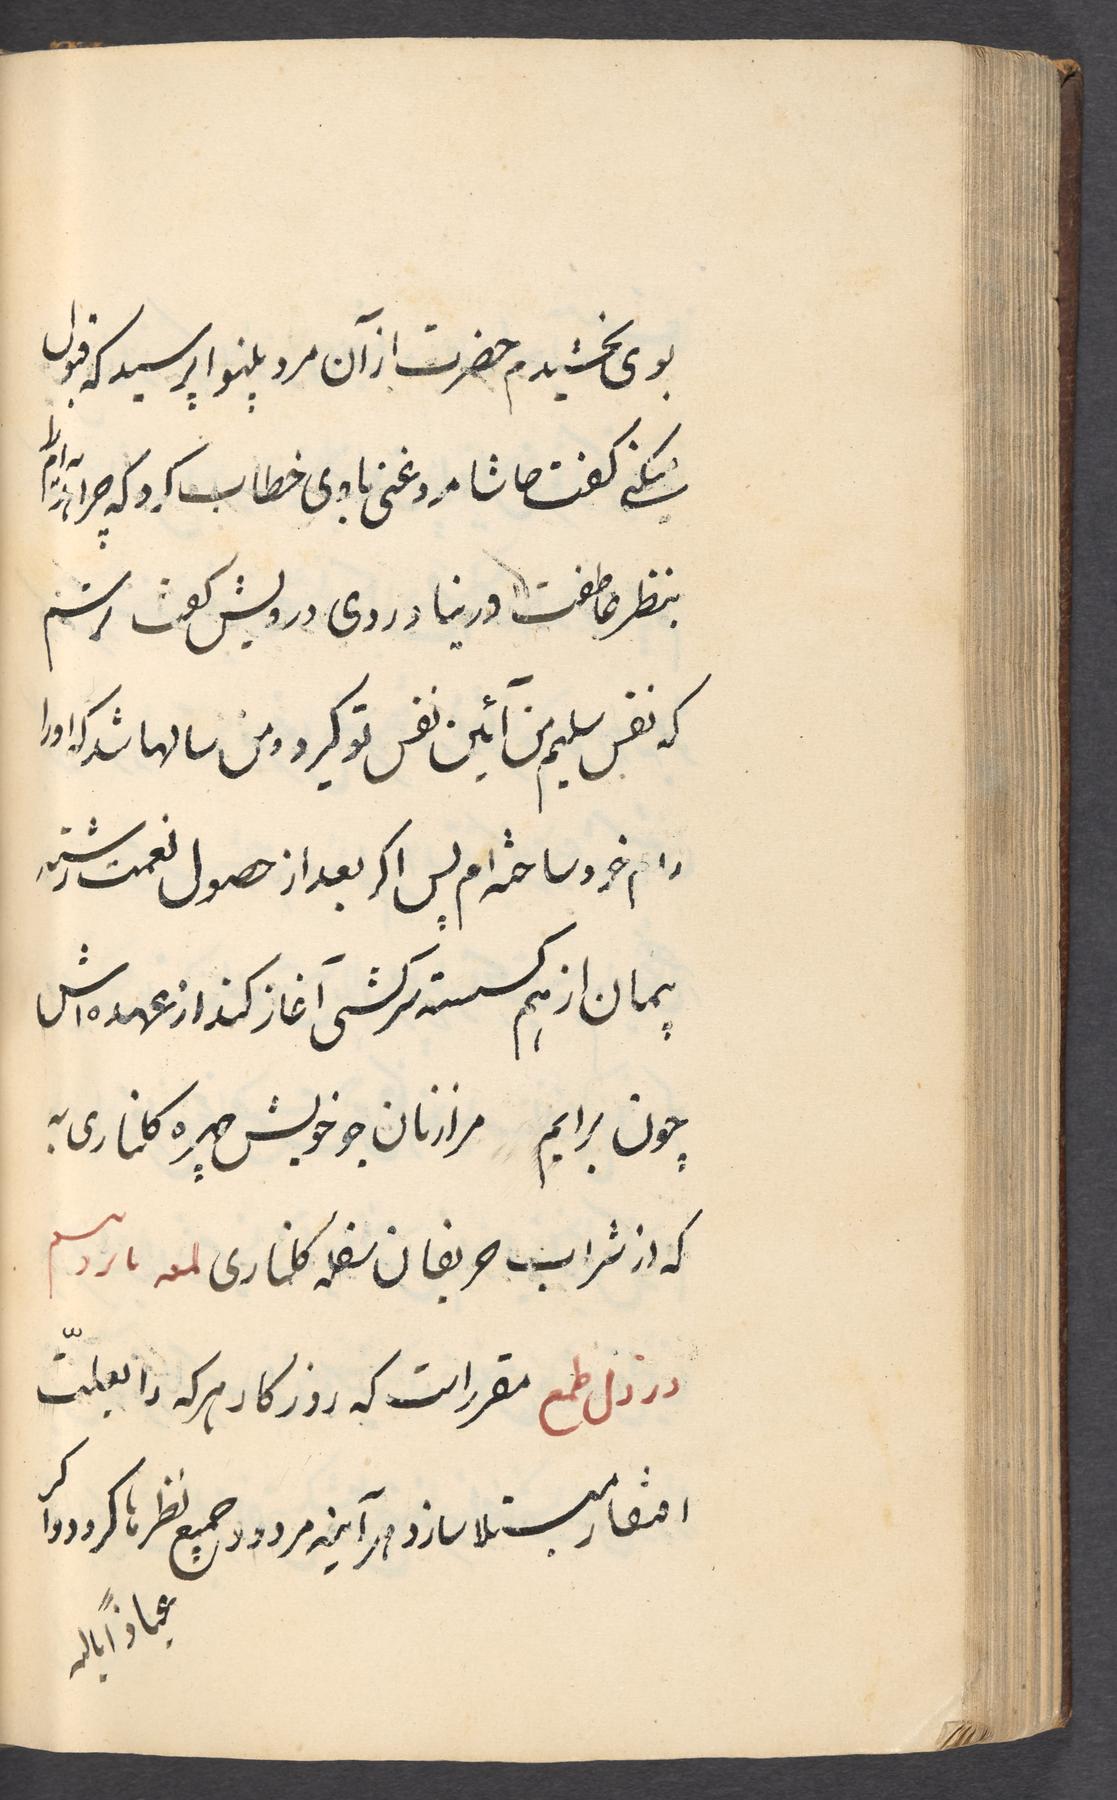 بوی بخشیدم حضرت از آن مرد بینوا پرسید که قبول
میکنی گفت حاشا مرد غنی با وی خطاب کرد که چرا
بنظر عاطفت در نیاوردی درویش گفت ترسم
که نفس سلیم من آئین نفس تو گیرد و من سالها شد که او را
رام خود ساخته ام پس اگر بعد از حصول نعمت رشته
پیمان از هم گسسته سرکشی آغاز کند از عهده اش
چون برایم مرا ز نان جو خویش چهره گلناری به
که از شراب حریفان سفله گلناری لمعه یازدهم
در ذل طمع مقرر است که روزگار هر که را بعلّت
افتقار مبتلا سازد هر آینه مردود جمیع نظرها گردد و اگر
عیاذاً بالله